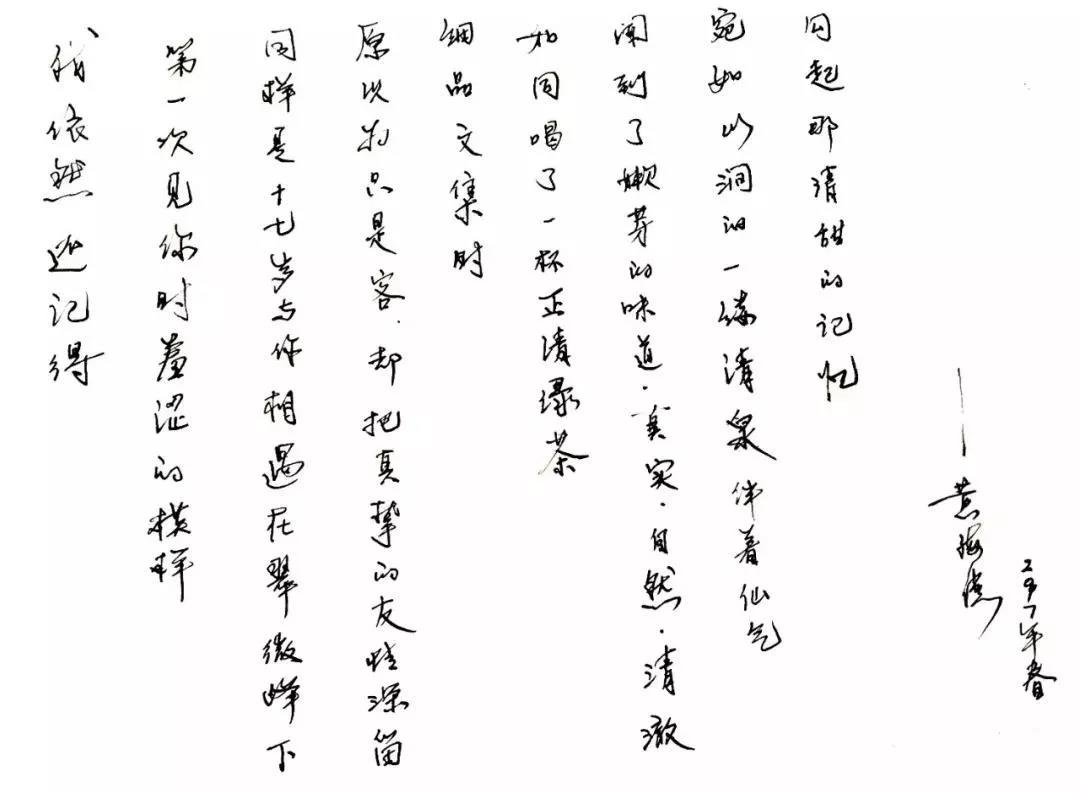 我依然还记得
第一次见你时羞涩的模样
同样是十七岁与你相遇在翠微峰下
原以为只是客.却把真挚的友情深留
细品文集时
如同喝了一杯正清绿茶
闻到了嫩芽的味道.真实.自然.清澈
宛如山涧的一缕清泉伴着仙气
勾起那清甜的记忆
——黄
2017年春